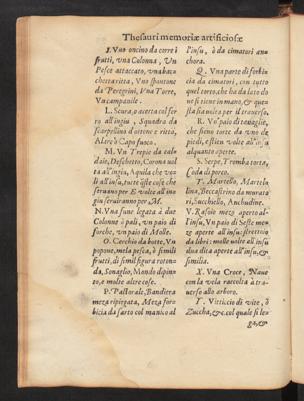 Thesauri memoriæ artificiosæ
I. Vno oncino da corre i
frutti, vna Colonna, Vn
Pesce attaccato, vna baca
chetta ritta, Vno spuntone
da Peregrini, Vna Torre,
Vn campanile.
L. Scura, o accetta col fer
ro all'ingiu, Squadra da
scarpellino d'ottone e ritta,
Alare o Capo fuoco.
M. Vn Trepie da cal-
daie, Deschetto, Corona uol
ta all'ingiu, Aquila che uo
li all'insu, tutte q̃ste cose che
serueno per E volte all'in-
giu seruiranno per M.
N. Vna fune legata à due
Colonne ò pali, vn paio di
forche, vn paio di Molle.
O. Cerchio da botte, Vn
popone, mela pesca, ò simili
frutti, di simil figura roton-
da, Sonaglio, Mondo dipin-
to, e molte altre cose.
P. Pastorale, Bandiera
meza ripiegata, Meza foro
bicia da sarto col manico al
l'insu, ò da cimatori an-
chora.
Q. Vna parte di forbi-
cia da cimatori, con tutto
quel torto, che ha da lato do
ue si tiene in mano, & que-
sta sia uolta per il trauerso.
R. Vn paio di tanaglie,
che sieno torte da vno de
piedi, estien volte all'insu
alquanto aperte.
S. Serpe, Tromba torta,
Coda di porco.
T. Martello, Martel-
lino, Beccastrino da murato
ri, Succhiello, Anchudine.
V. Rasoio mezo aperto al-
l'insu, Vn paio di Seste me-
ze aperte all'insu: strettoio
da libri: molle uolte all'insu
dua dita aperte all'insu, &
similia.
X. Vna Croce, Naue
con la vela raccolta à tra-
uerso allo arboro.
Y. Viticcio di vite, ò
Zuccha, &c. col quale si le-
ga, &